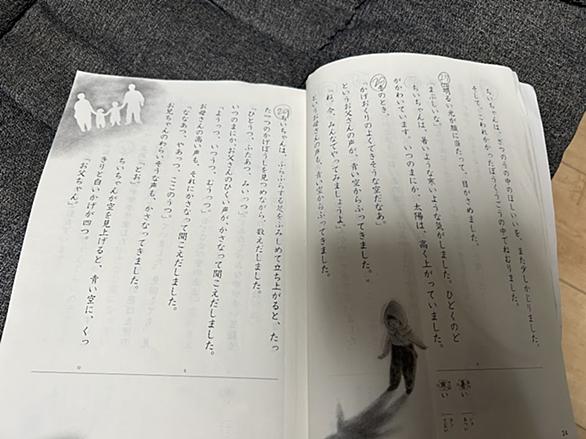 ちいちゃんは、ざつのうの中のほしいいを、また少しかじりました。
そして、こわれかかったぼうくうごうの中でねむりました。
明るい光が顔に当たって、目がさめました。
「まぶしいな。」
ちいちゃんは、暑いような寒いような気がしました。ひどくのど
がかわいています。いつのまにか、太陽は、高く上がっていました。
そのとき、
「かげおくりのよくできそうな空だなあ。」
というお父さんの声が、青い空からふってきました。
「ね。今、みんなでやってみましょうよ。」
というお母さんの声も、青い空からふってきました。
暑い
寒い
24
ちいちゃんは、ふらふらする足をふみしめて立ち上がると、たっ
た一つのかげぼうしを見つめながら、数えだしました。
「ひとうつ、ふたあつ、みいっつ。」
いつのまにか、お父さんのひくい声が、かさなって聞こえだしました。
「ようっつ、いつうつ、むうっつ。」
お母さんの高い声も、それにかさなって聞こえだしました。
「ななあつ、やあっつ、ここのうつ。」
お兄ちゃんのわらいそうな声も、かさなってきました。
「とお。」
ちいちゃんが空を見上げると、青い空に、くっ
きりと白いかげが四つ。
「お父ちゃん。」